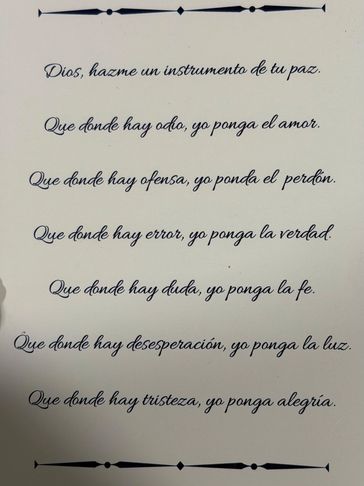 Dios, hazme un instrumento de tu paz.
Que donde hay odio, yo ponga el amor.
Que donde hay ofensa, yo ponda el perdón.
Que donde hay error, yo ponga la verdad.
Que donde hay duda, yo ponga la fe.
Que donde hay desesperación, yo ponga la luz.
Que donde hay tristeza, yo ponga alegría.